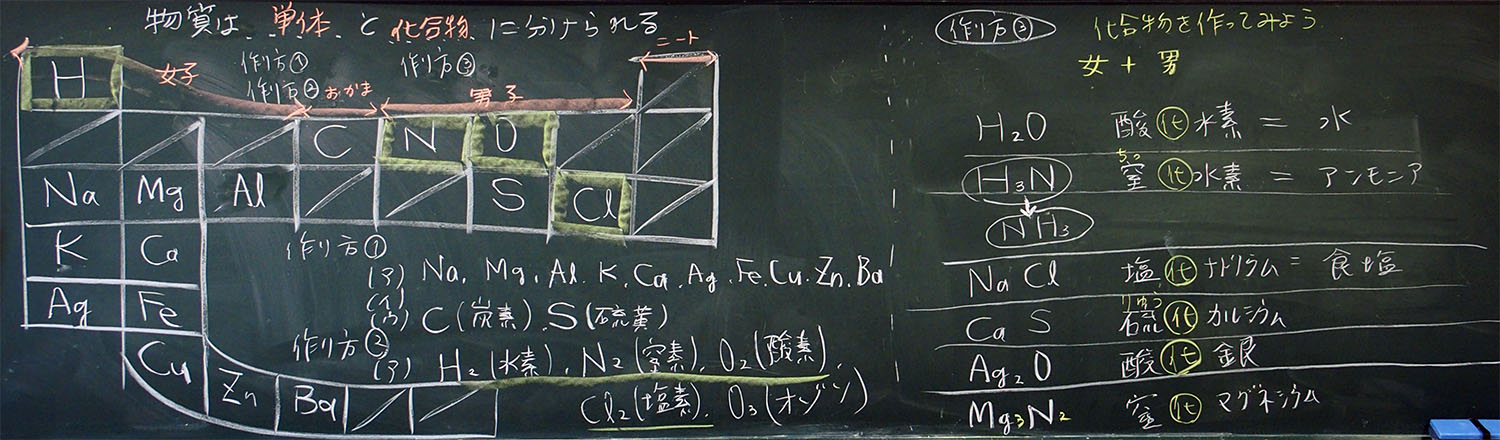 物質は 単体 と 化合物 に分けられる
ニート
女子
作り方①
作り方②
おかま
作り方③
男子
H
C N O
Na Mg Al S Cl
K Ca
Ag Fe
Cu
Zn
Ba
作り方①
(ア) Na, Mg, Al, K, Ca, Ag, Fe, Cu, Zn, Ba
(イ)
(ウ) C(炭素), S(硫黄)
作り方②
(ア) H2(水素), N2(窒素), O2(酸素),
Cl2(塩素), O3(オゾン)
作り方③ 化合物を作ってみよう
女 + 男
H2O 酸化水素 = 水
ちっ
H3N 窒化水素 = アンモニア
NH3
NaCl 塩化ナトリウム = 食塩
りゅう
CaS 硫化カルシウム
Ag2O 酸化銀
Mg3N2 窒化マグネシウム